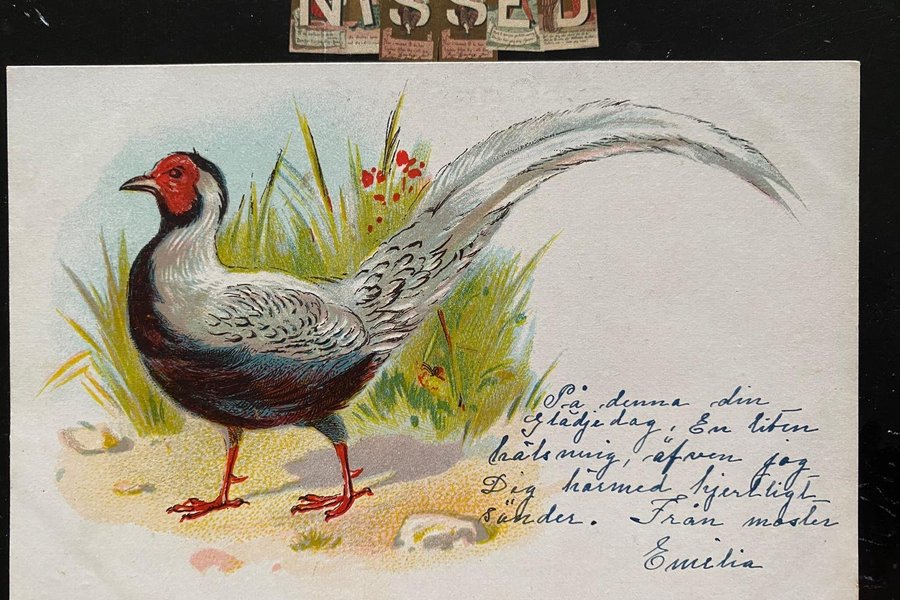 NISSED
På denna din
Glädjedag, En liten
hälsning, äfven jag
Dig härmed hjertligt
sänder. Från moster
Emelia